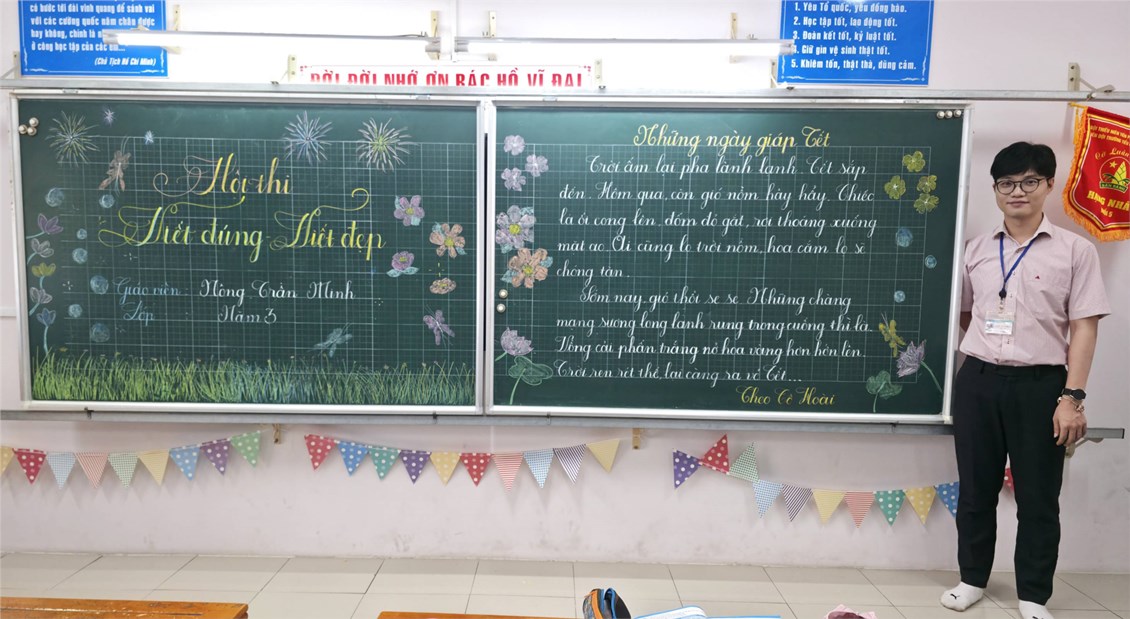 có bước tới đài vinh quang để sánh vai
với các cường quốc năm châu được
hay không, chính là
ở công học tập của các
(Chủ Tịch Hồ Chí Minh)
1. Yêu Tổ quốc, yêu đồng bào.
2. Học tập tốt, lao động tốt.
3. Đoàn kết tốt, kỷ luật tốt.
4. Giữ gìn vệ sinh thật tốt.
5. Khiêm tốn, thật thà, dũng cảm.
ĐỜI ĐỜI NHỚ ƠN BÁC HỒ VĨ ĐẠI
Hội thi
Viết đúng - Viết đẹp
Giáo viên: Nông Trần Minh
Lớp: Năm 3
Những ngày giáp Tết
Trời ấm lại pha lành lạnh. Tết sắp
đến. Hôm qua, còn gió nồm hây hẩy. Chiếc
lá ổi cong lên, đốm đỏ gắt, rơi thoáng xuống
mặt ao. Ổi cũng lo trời nồm, hoa cám lo sẽ
chóng tàn.
Sớm nay gió thổi se se. Những chàng
mạng sương long lanh rung trong cuống thì là.
Vồng cải phấn trắng nở hoa vàng hơn hớn lên.
Trời rén rét thế, lại càng ra vẻ Tết...
Theo Tô Hoài
HẠNG NHẤT